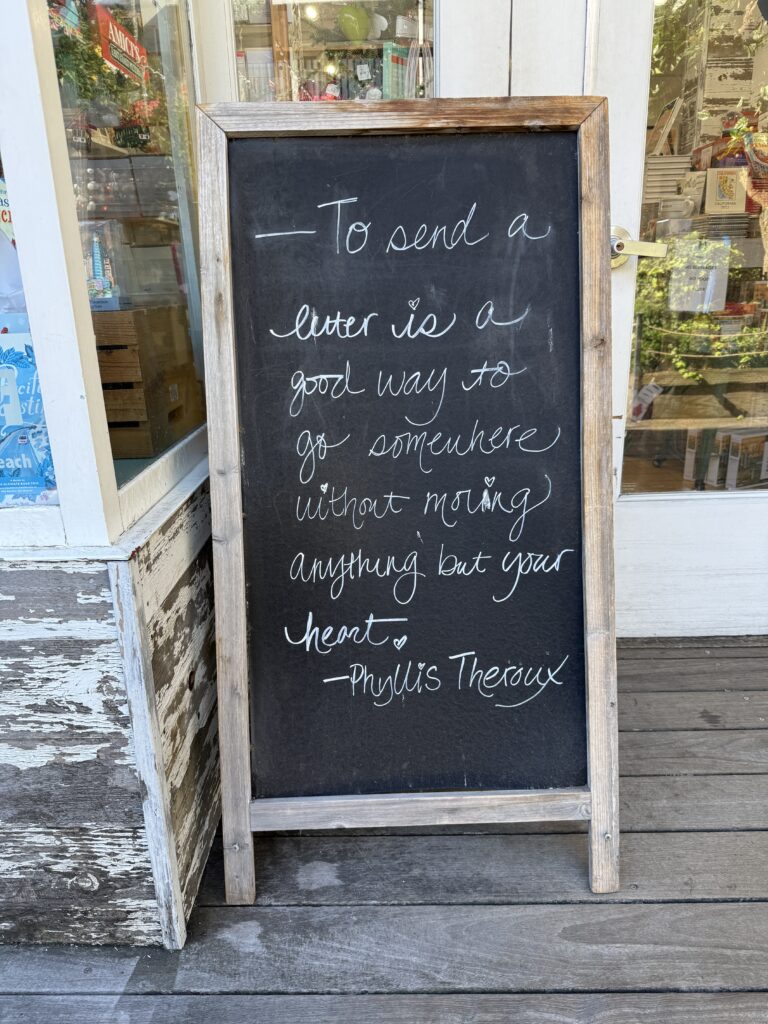 AMICI'S
— To send a
letter is a
good way to
go somewhere
without moving
anything but your
heart.
— Phyllis Theroux
each
CALIFORNIA